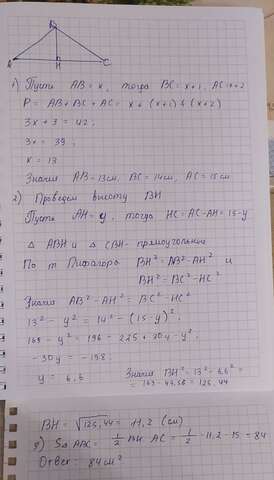 B
A H C
1) Пусть AB = x, тогда BC = x+1, AC = x+2
P = AB + BC + AC = x + (x+1) + (x+2)
3x + 3 = 42;
3x = 39;
x = 13
Значит AB = 13 см, BC = 14 см, AC = 15 см
2) Проведем высоту BH
Пусть AH = y, тогда HC = AC - AH = 15 - y
Δ ABH и Δ CBH - прямоугольные
По т Пифагора BH² = AB² - AH² и
BH² = BC² - HC²
Значит AB² - AH² = BC² - HC²
13² - y² = 14² - (15 - y)²;
169 - y² = 196 - 225 + 30y - y²;
-30y = -198;
y = 6,6 Значит BH² = 13² - 6,6² =
= 169 - 43,56 = 125,44
BH = √125,44 = 11,2 (см)
3) S Δ ABC = 1/2 BH · AC = 1/2 · 11,2 · 15 = 84
Ответ: 84 см²